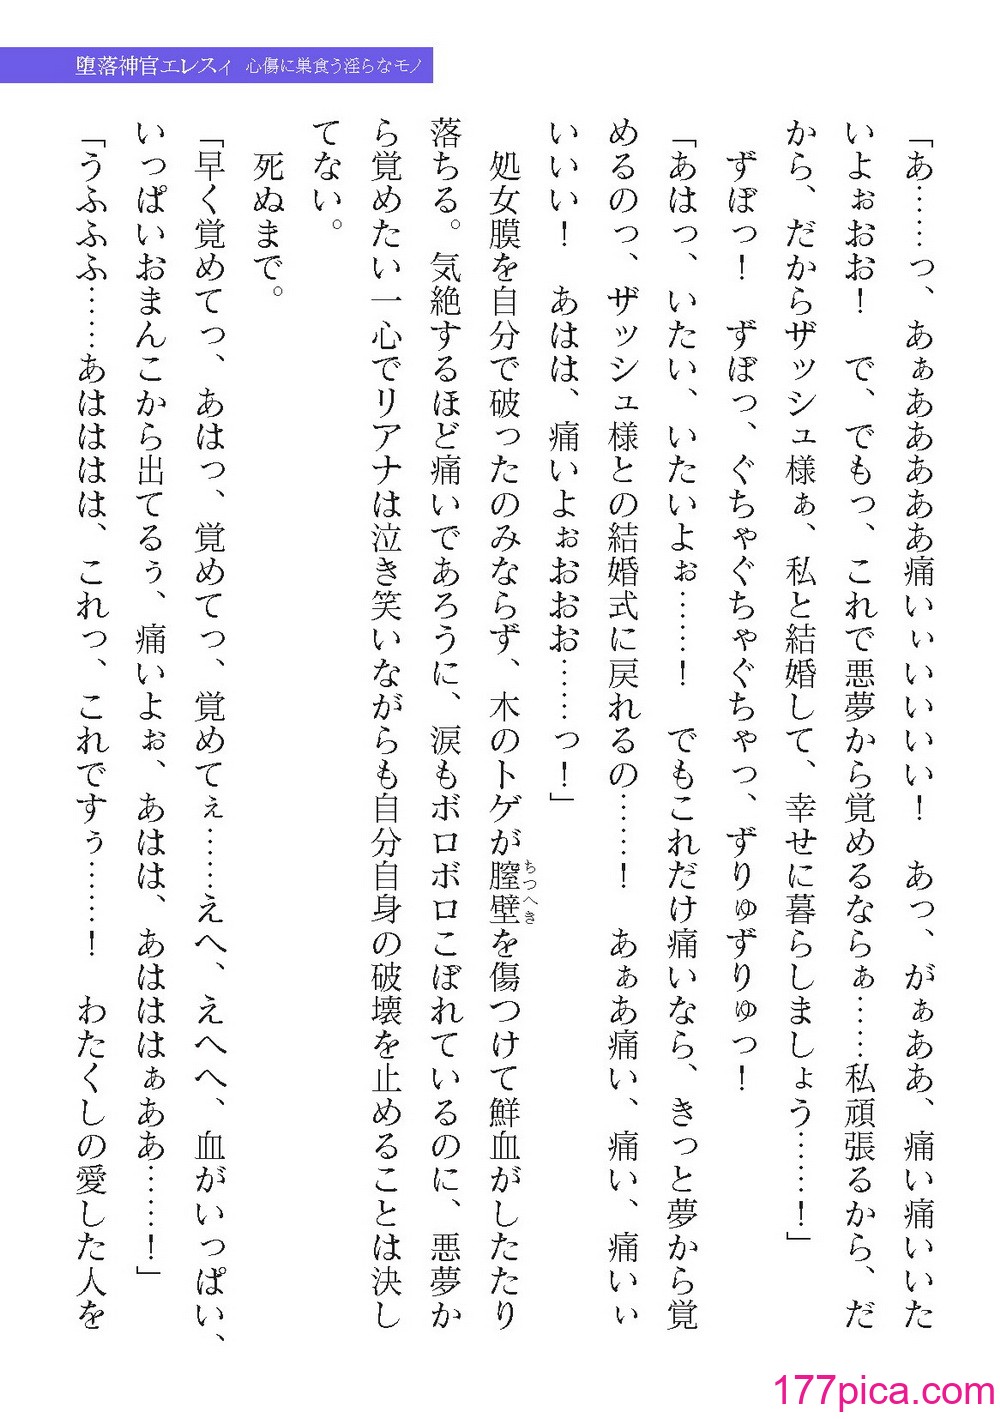 堕落神官エレスィ 心傷に巣食う淫らなモノ
「あ……っ、あぁああああ痛いぃいいいい！　あっ、がぁああ、痛い痛いいた
いよぉおお！　で、でもっ、これで悪夢から覚めるならぁ……私頑張るから、だ
から、だからザッシュ様ぁ、私と結婚して、幸せに暮らしましょう……！」
　ずぼっ！　ずぼっ、ぐちゃぐちゃぐちゃっ、ずりゅずりゅっ！
「あはっ、いたい、いたいよぉ……！　でもこれだけ痛いなら、きっと夢から覚
めるのっ、ザッシュ様との結婚式に戻れるの……！　あぁあ痛い、痛い、痛いぃ
いいい！　あはは、痛いよぉおおお……っ！」
　処女膜を自分で破ったのみならず、木のトゲが膣壁を傷つけて鮮血がしたたり
ちつへき
落ちる。気絶するほど痛いであろうに、涙もボロボロこぼれているのに、悪夢か
ら覚めたい一心でリアナは泣き笑いながらも自分自身の破壊を止めることは決し
てない。
　死ぬまで。
「早く覚めてっ、あはっ、覚めてっ、覚めてぇ……えへ、えへへ、血がいっぱい、
いっぱいおまんこから出てるぅ、痛いよぉ、あはは、あはははぁああ……！」
「うふふふ……あはははは、これっ、これですぅ……！　わたくしの愛した人を
177pica.com